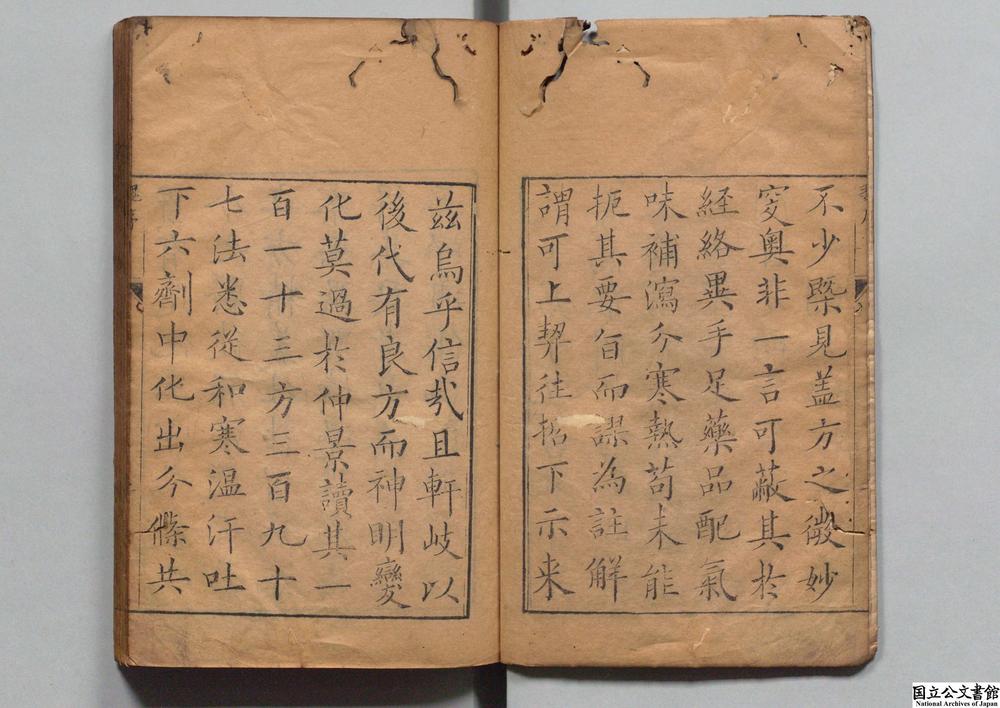 不少槩見蓋方之微妙
窔奧非一言可蔽其於
経絡異手足藥品配氣
味補瀉分寒熱苟未能
扼其要旨而謬為註解
謂可上契往哲下示来
茲烏乎信㢤且軒岐以
後代有良方而神明變
化莫過於仲景讀其一
百一十三方三百九十
七法悉從和寒温汗吐
下六劑中化出今條共
国立公文書館
National Archives of Japan